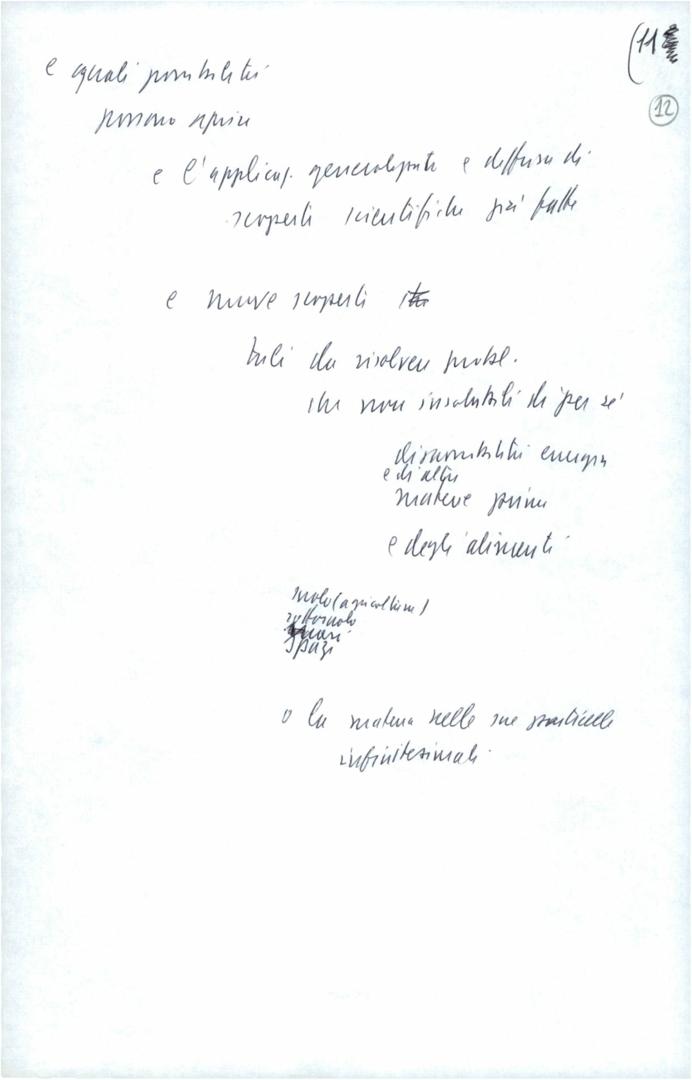 (11
12
e quali possibilità
possono aprire
e l'applicaz. generalizzata e diffusa di
scoperte scientifiche già fatte
e nuove scoperte
tali da risolvere probl.
che non insolubili di per sé
disponibilità energia
e di altre
materie prime
e degli alimenti
suolo (agricoltura)
sottosuolo
mari
spazi
o la materia nelle sue particelle
infinitesimali